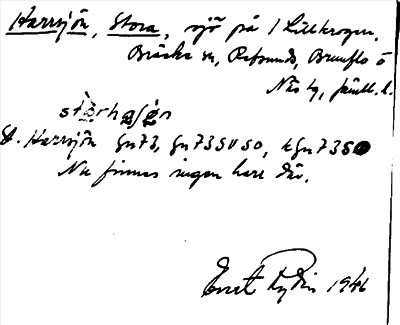 Harrsjön, Stora, sjö på 1 Lillkrogen,
Bräcke sn, Refsunds, Brunflo o
Näs tg, Jämtl. l.
stòrhaʃən
St. Harrsjön Gu73, Gu73SVSO, kGu73SO
Nu finnes ingen harr där.
Evert Rydin 1946